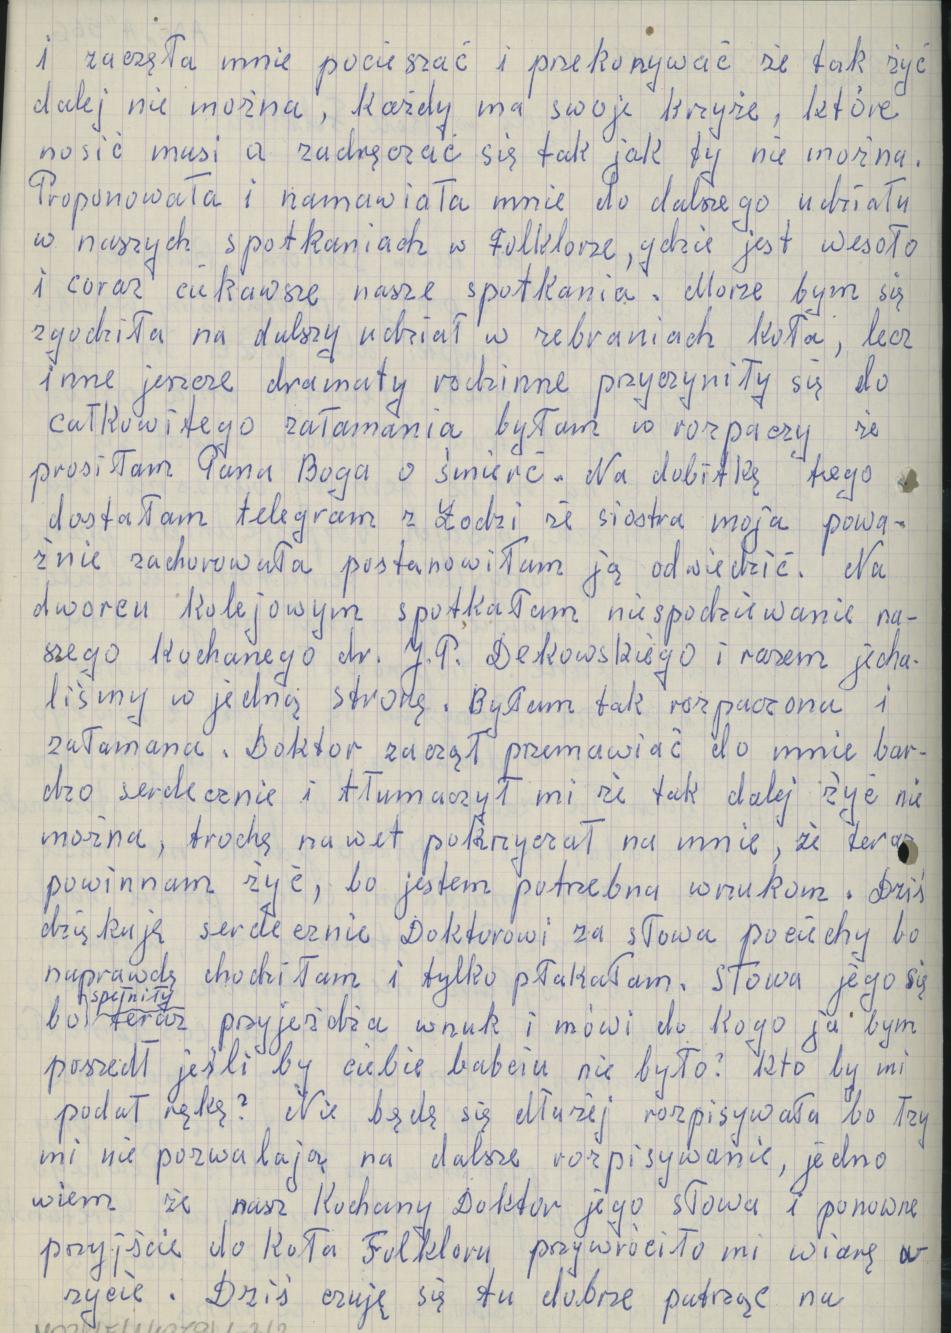 i zaczęła mnie pocieszać i przekonywać że tak żyć
dalej nie można, każdy ma swoje krzyże, które
nosić musi a zadręczać się tak jak ty nie można.
Proponowała i namawiała mnie do dalszego udziału
w naszych spotkaniach w Folklorze, gdzie jest wesoło
i coraz ciekawsze nasze spotkania. Może bym się
zgodziła na dalszy udział w zebraniach koła, lecz
inne jeszcze dramaty rodzinne przyczyniły się do
całkowitego załamania byłam w rozpaczy że
prosiłam Pana Boga o śmierć. Na dobitkę tego
dostałam telegram z Łodzi że siostra moja powa-
żnie zachorowała postanowiłam ją odwiedzić. Na
dworcu kolejowym spotkałam niespodziewanie na-
szego kochanego dr. J.P. Dekowskiego i razem jecha-
liśmy w jedną stronę. Byłam tak rozpaczona i
załamana. Doktor zaczął przemawiać do mnie bar-
dzo serdecznie i tłumaczył mi że tak dalej żyć nie
można, trochę nawet pokrzyczał na mnie, że teraz
powinnam żyć, bo jestem potrzebna wnukom. Dziś
dziękuję serdecznie Doktorowi za słowa pociechy bo
naprawdę chodziłam i tylko płakałam. Słowa jego się
spełniły
bo teraz przyjeżdża wnuk i mówi do kogo ja bym
poszedł jeśli by ciebie babciu nie było? kto by mi
podał rękę? Nie będę się dłużej rozpisywała bo łzy
mi nie pozwalają na dalsze rozpisywanie, jedno
wiem że nasz Kochany Doktor jego słowa i ponowne
przyjście do Koła Folkloru przywróciło mi wiarę w
życie. Dziś czuję się tu dobrze patrząc na